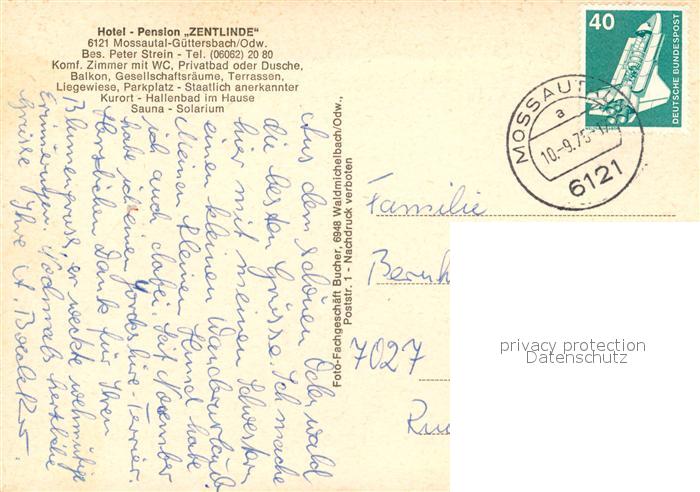 Hotel - Pension „ZENTLINDE“
6121 Mossautal-Güttersbach/Odw.
Bes. Peter Strein - Tel. (06062) 20 80
Komf. Zimmer mit WC, Privatbad oder Dusche,
Balkon, Gesellschaftsräume, Terrassen,
Liegewiese, Parkplatz - Staatlich anerkannter
Kurort - Hallenbad im Hause
Sauna - Solarium
Aus dem schönen Odenwald
die besten Grüsse. Ich mache
hier mit meinen Schwestern
einen kleinen Wanderurlaub
Meinen kleinen Hund habe
ich auch dabei. Seit November
habe ich einen Yorkshire-Terrier.
Herzlichen Dank für Ihren
Blumengruss, er weckte wehmütige
Erinnerungen. Nochmals herzliche
Grüsse Ihre A.
Foto-Fachgeschäft Bucher, 6948 Waldmichelbach/Odw.,
Poststr. 1 - Nachdruck verboten
40
DEUTSCHE BUNDESPOST
MOSSAUT
a
10.-9.75
6121
Familie
Bernh
7027
privacy protection
Datenschutz